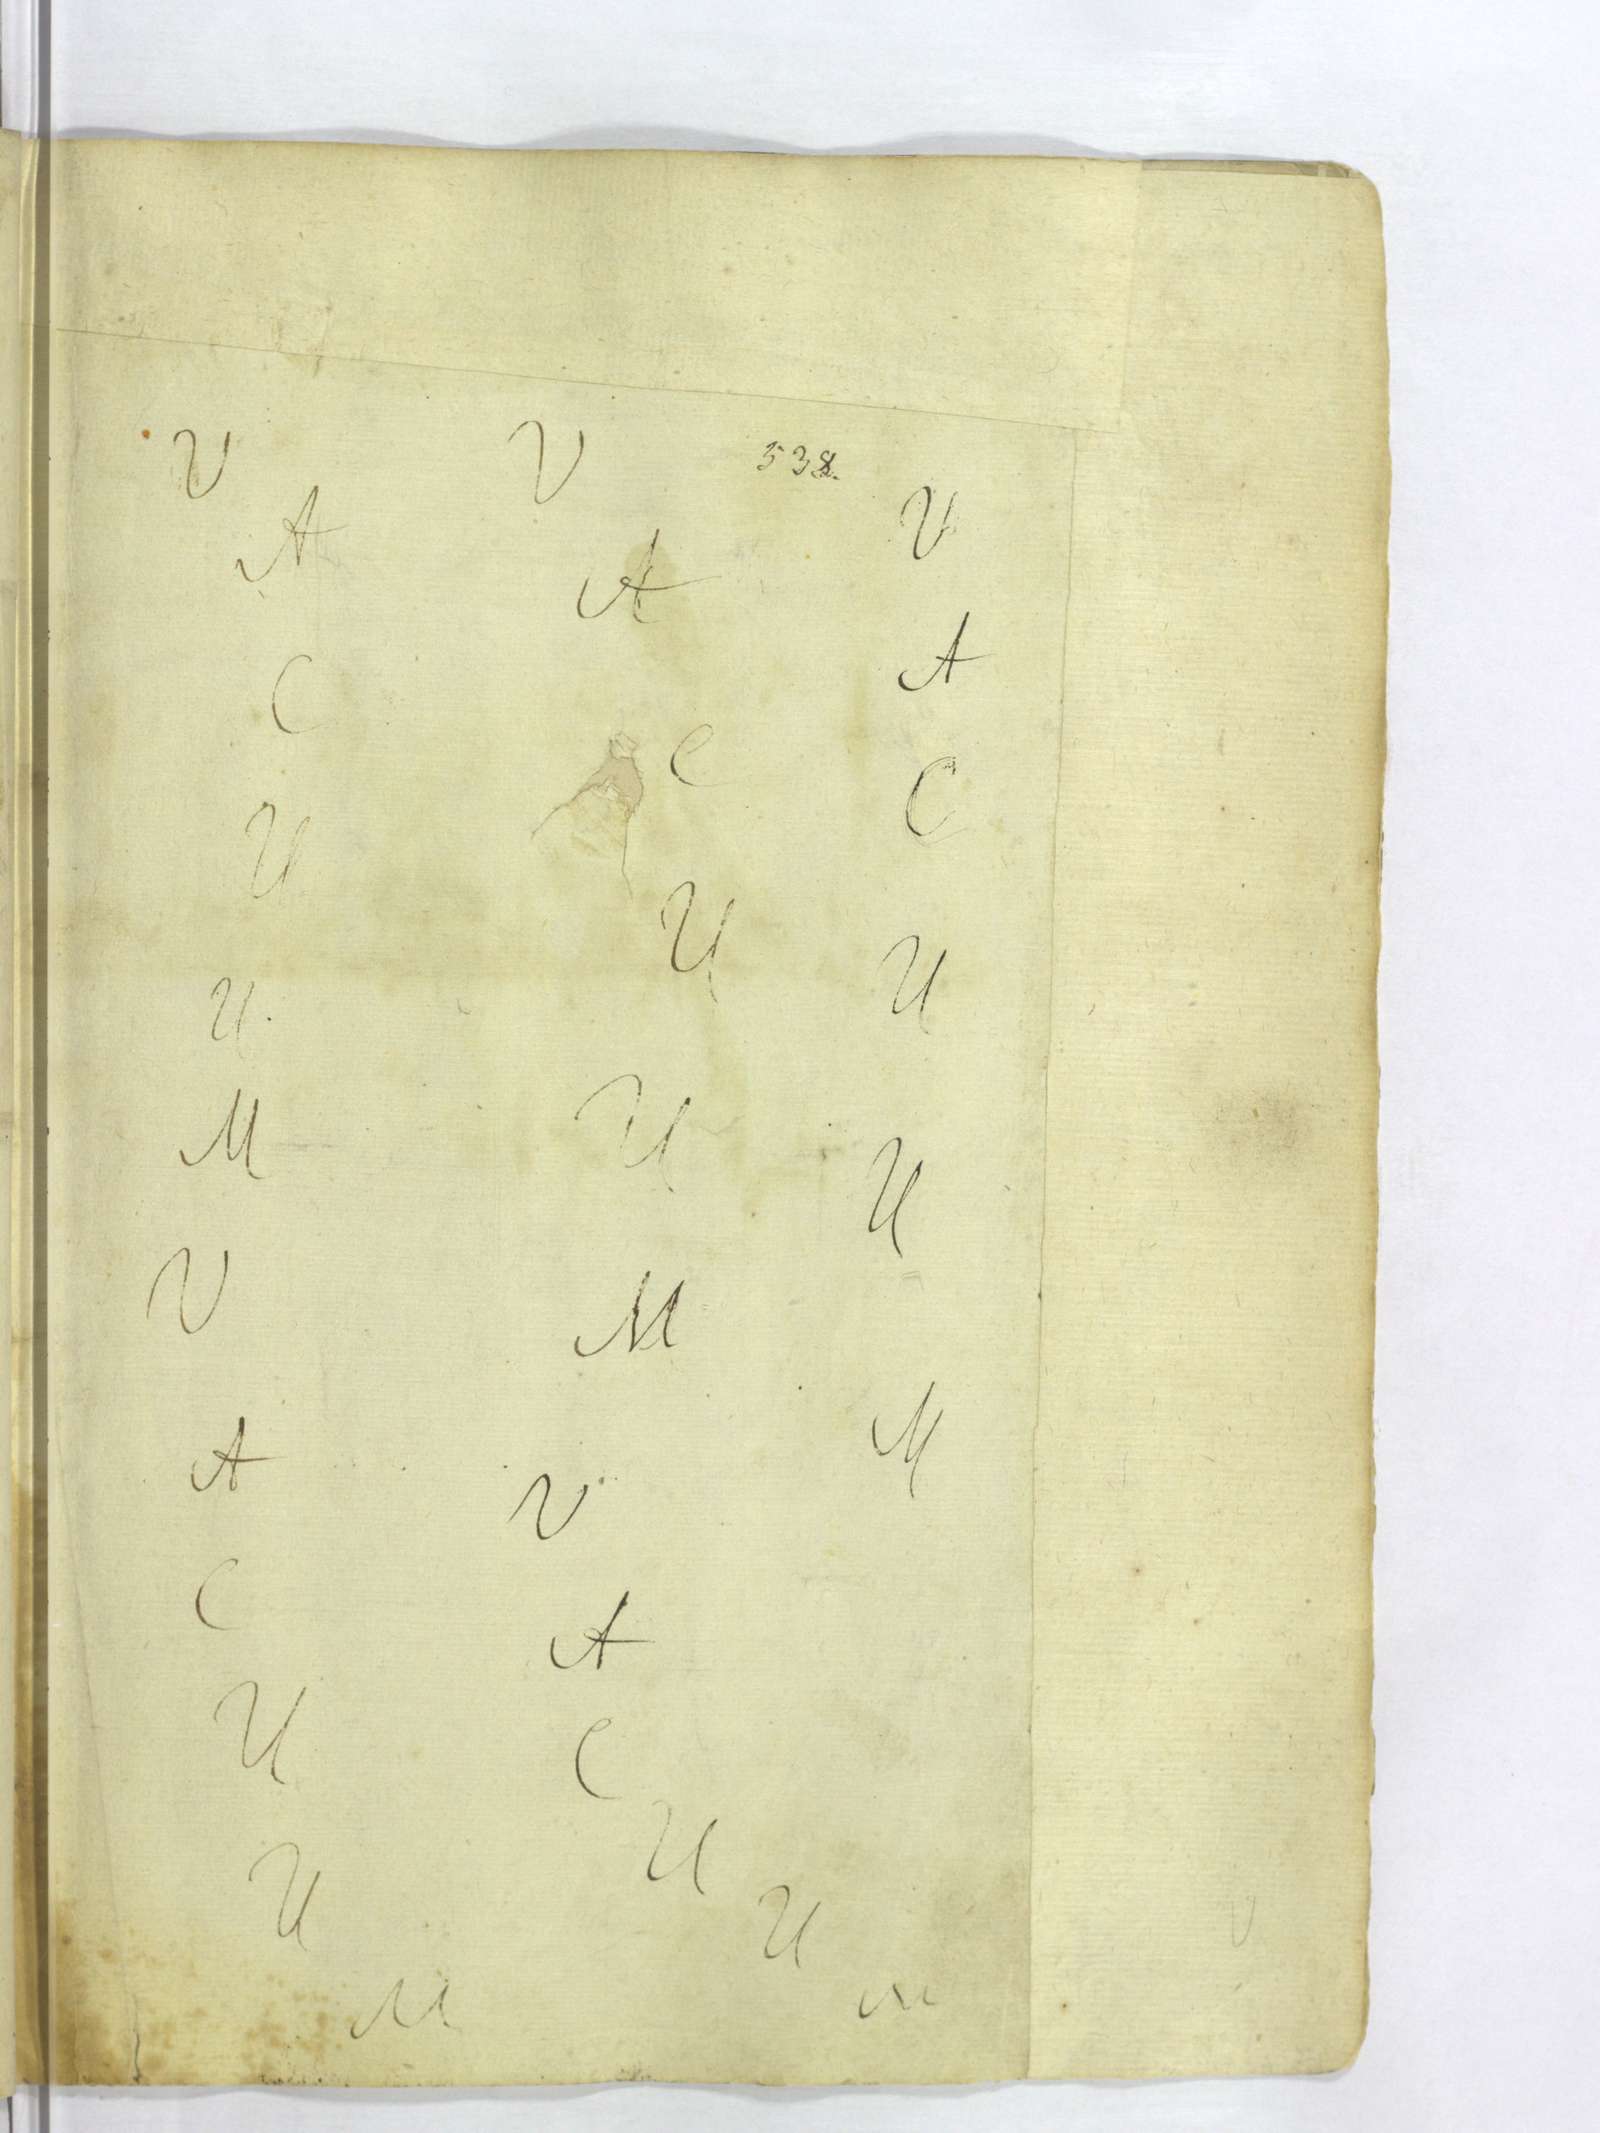 538.
V
A
C
U
U
M
V
A
C
U
U
M
V
A
C
U
U
M
V
A
C
U
U
M
V
A
C
U
U
M